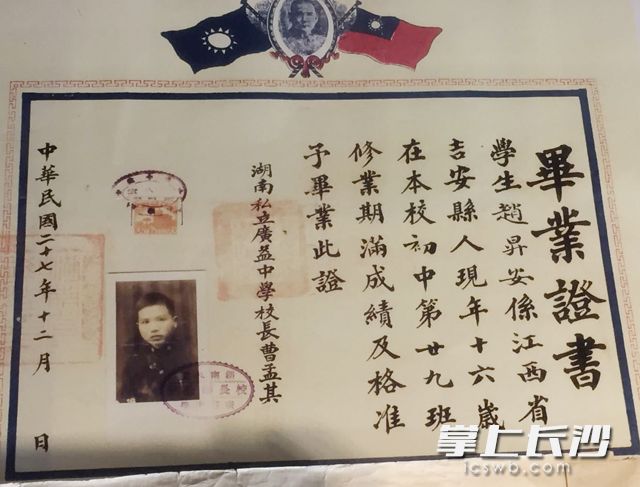 畢業證書
學生趙昇安係江西省
吉安縣人現年十六歲
在本校初中第廿九班
修業期滿成績及格准
予畢業此證
湖南私立廣益中學校長曹孟其
中華民國二十七年十二月 日
掌上长沙
icswb.com